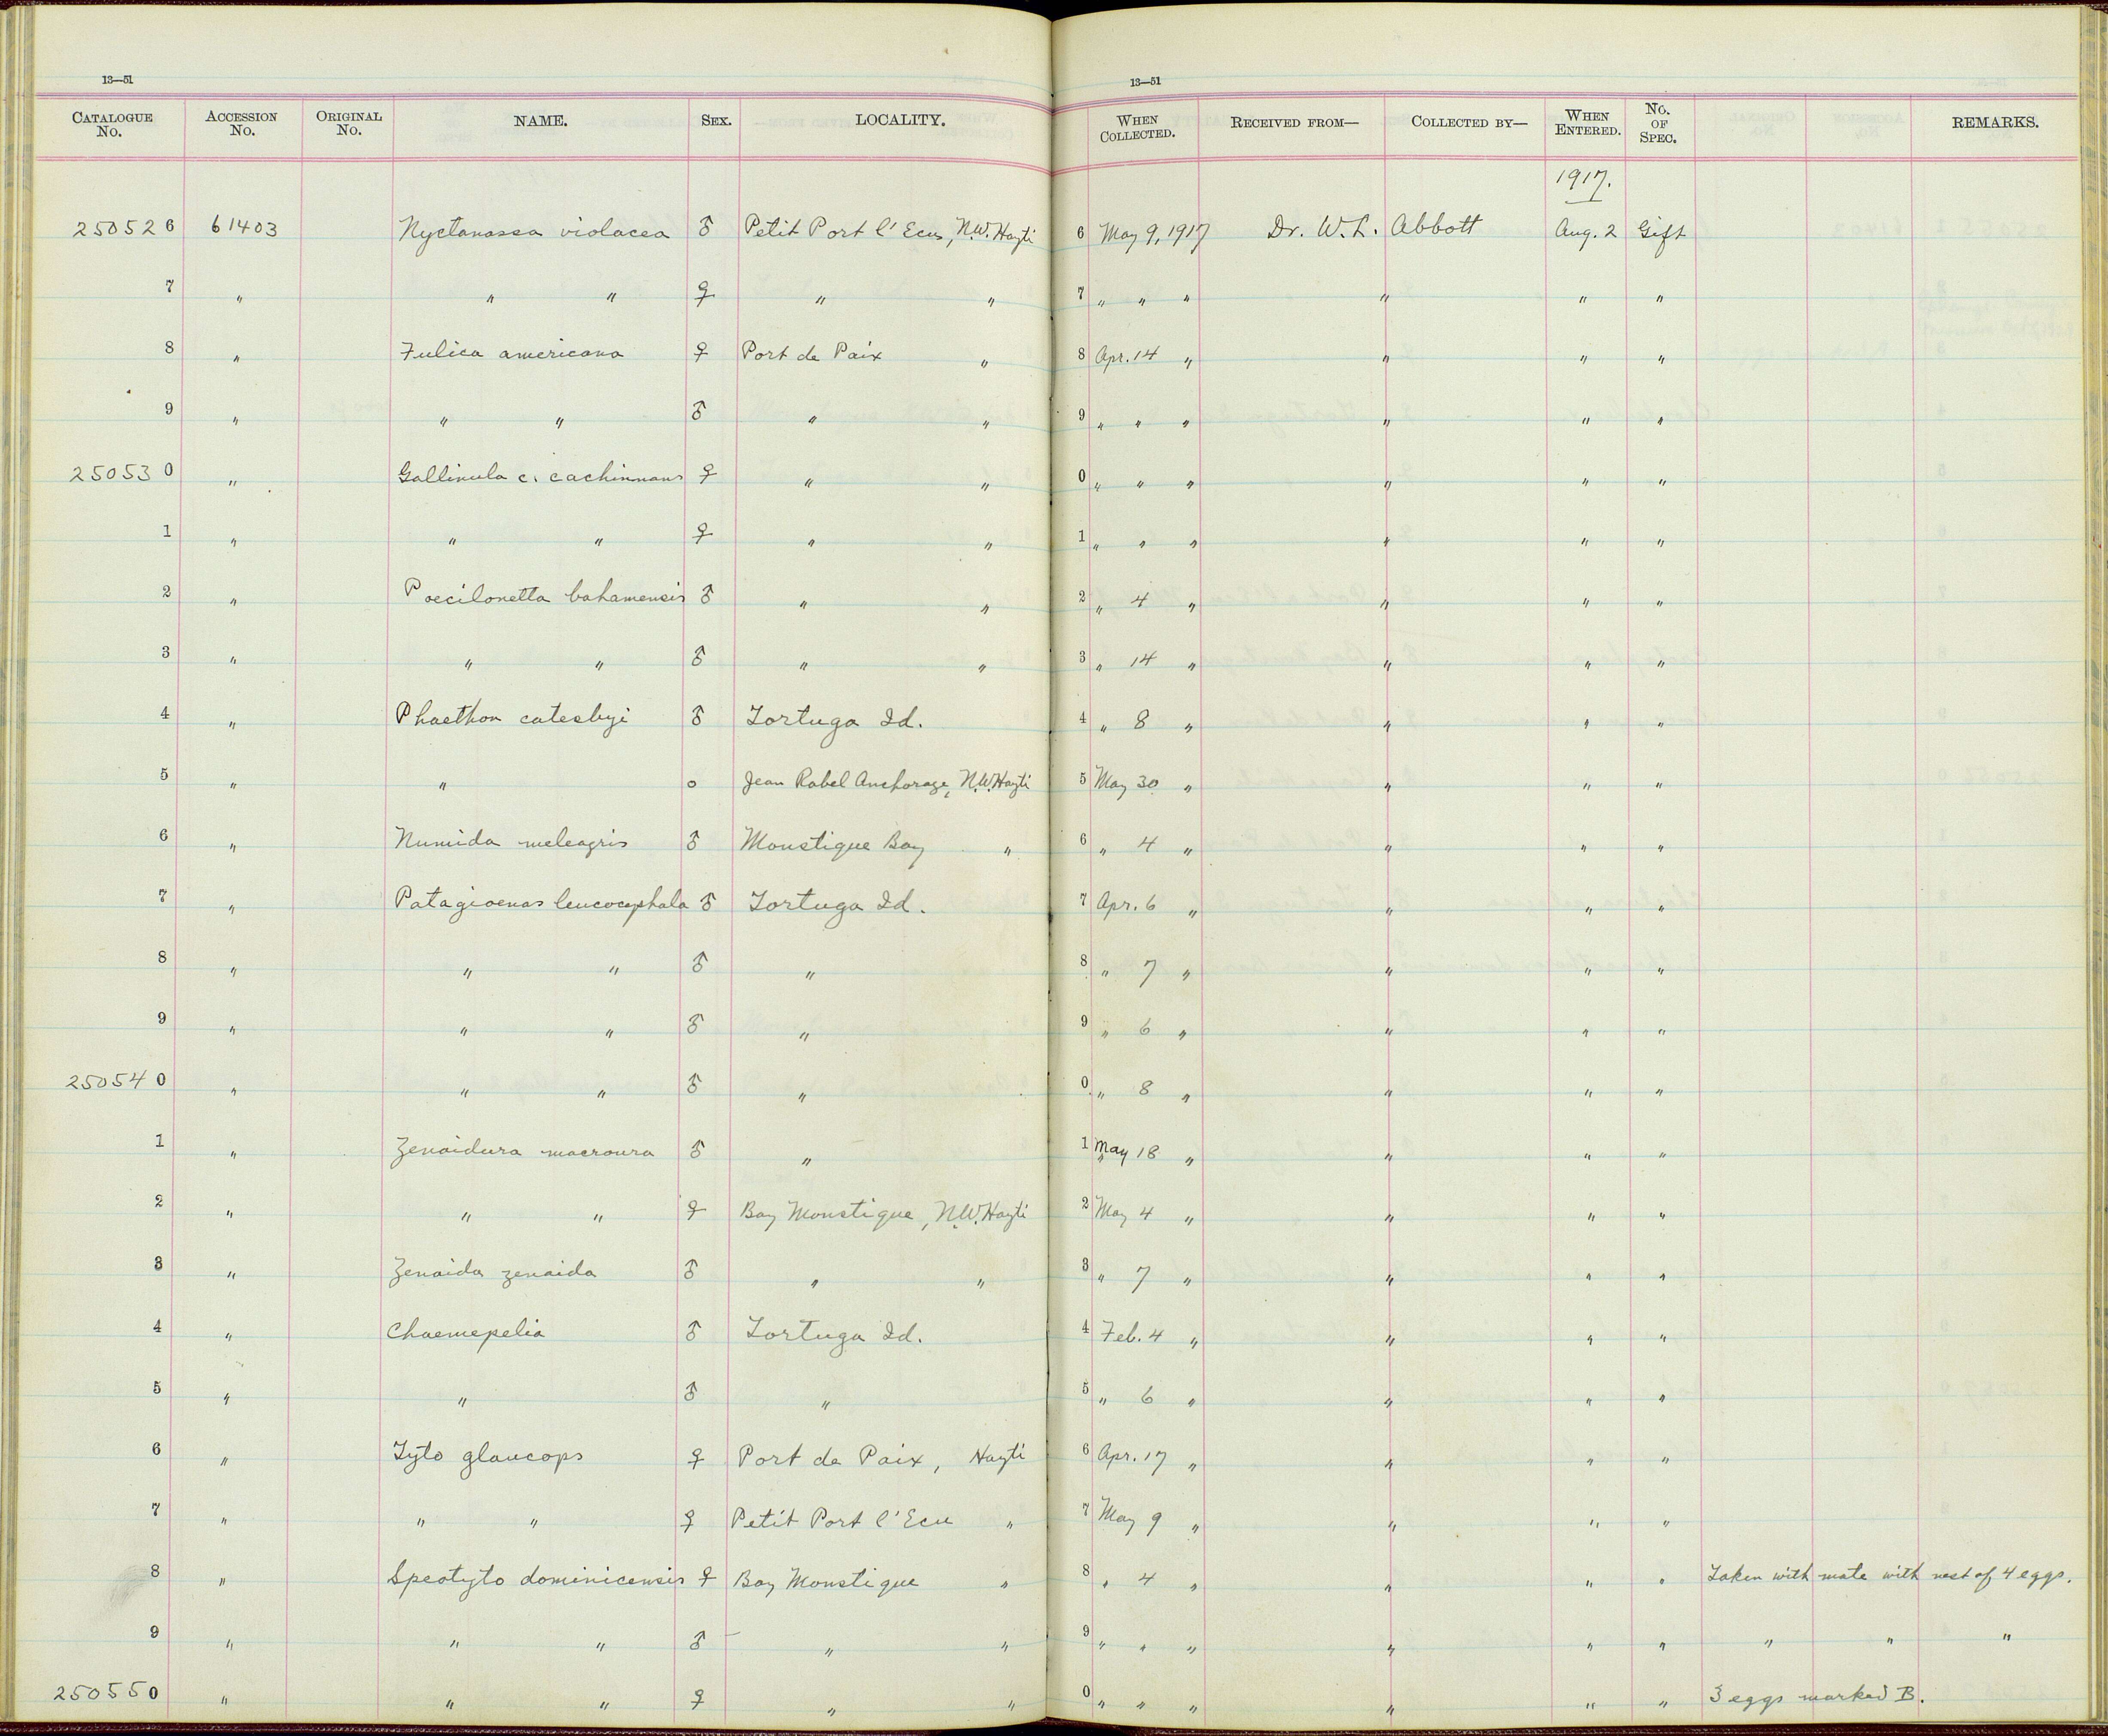 13—51
13—51
CATALOGUE No. ACCESSION No. ORIGINAL No. NAME. SEX. LOCALITY. WHEN COLLECTED. RECEIVED FROM— COLLECTED BY— WHEN ENTERED. No. OF SPEC. REMARKS.
1917.
250526 61403 Nyctanassa violacea ♂ Petit Port l'Ecu, N.W. Hayti 6 May 9, 1917 Dr. W. L. Abbott Aug. 2 Gift
7 " " " ♀ " " 7 " " " " " "
8 " Fulica americana ♀ Port de Paix " 8 Apr. 14 " " " "
9 " " " ♂ " " 9 " " " " " "
250530 " Gallinula c. cachinnans ♀ " " 0 " " " " " "
1 " " " ♀ " " 1 " " " " " "
2 " Poecilonetta bahamensis ♂ " " 2 " 4 " " " "
3 " " " ♂ " " 3 " 14 " " " "
4 " Phaethon catesbyi ♂ Tortuga Id. 4 " 8 " " " "
5 " " o Jean Rabel Anchorage, N.W. Hayti 5 May 30 " " " "
6 " Numida meleagris ♂ Moustique Bay " 6 " 4 " " " "
7 " Patagioenas leucocephala ♂ Tortuga Id. 7 Apr. 6 " " " "
8 " " " ♂ " 8 " 7 " " " "
9 " " " ♂ " 9 " 6 " " " "
250540 " " " ♂ " 0 " 8 " " " "
1 " Zenaidura macroura ♂ " 1 May 18 " " " "
2 " " " ♀ Bay Moustique, N.W. Hayti 2 May 4 " " " "
3 " Zenaida zenaida ♂ " " 3 " 7 " " " "
4 " Chaemepelia ♂ Tortuga Id. 4 Feb. 4 " " " "
5 " " ♂ " 5 " 6 " " " "
6 " Tyto glaucops ♀ Port de Paix, Hayti 6 Apr. 17 " " " "
7 " " " ♀ Petit Port l'Ecu " 7 May 9 " " " "
8 " Speotyto dominicensis ♀ Bay Moustique " 8 " 4 " " " " Taken with mate with nest of 4 eggs.
9 " " " ♂ " " 9 " " " " " " " " "
250550 " " " ♀ " " 0 " " " " " " 3 eggs marked B.